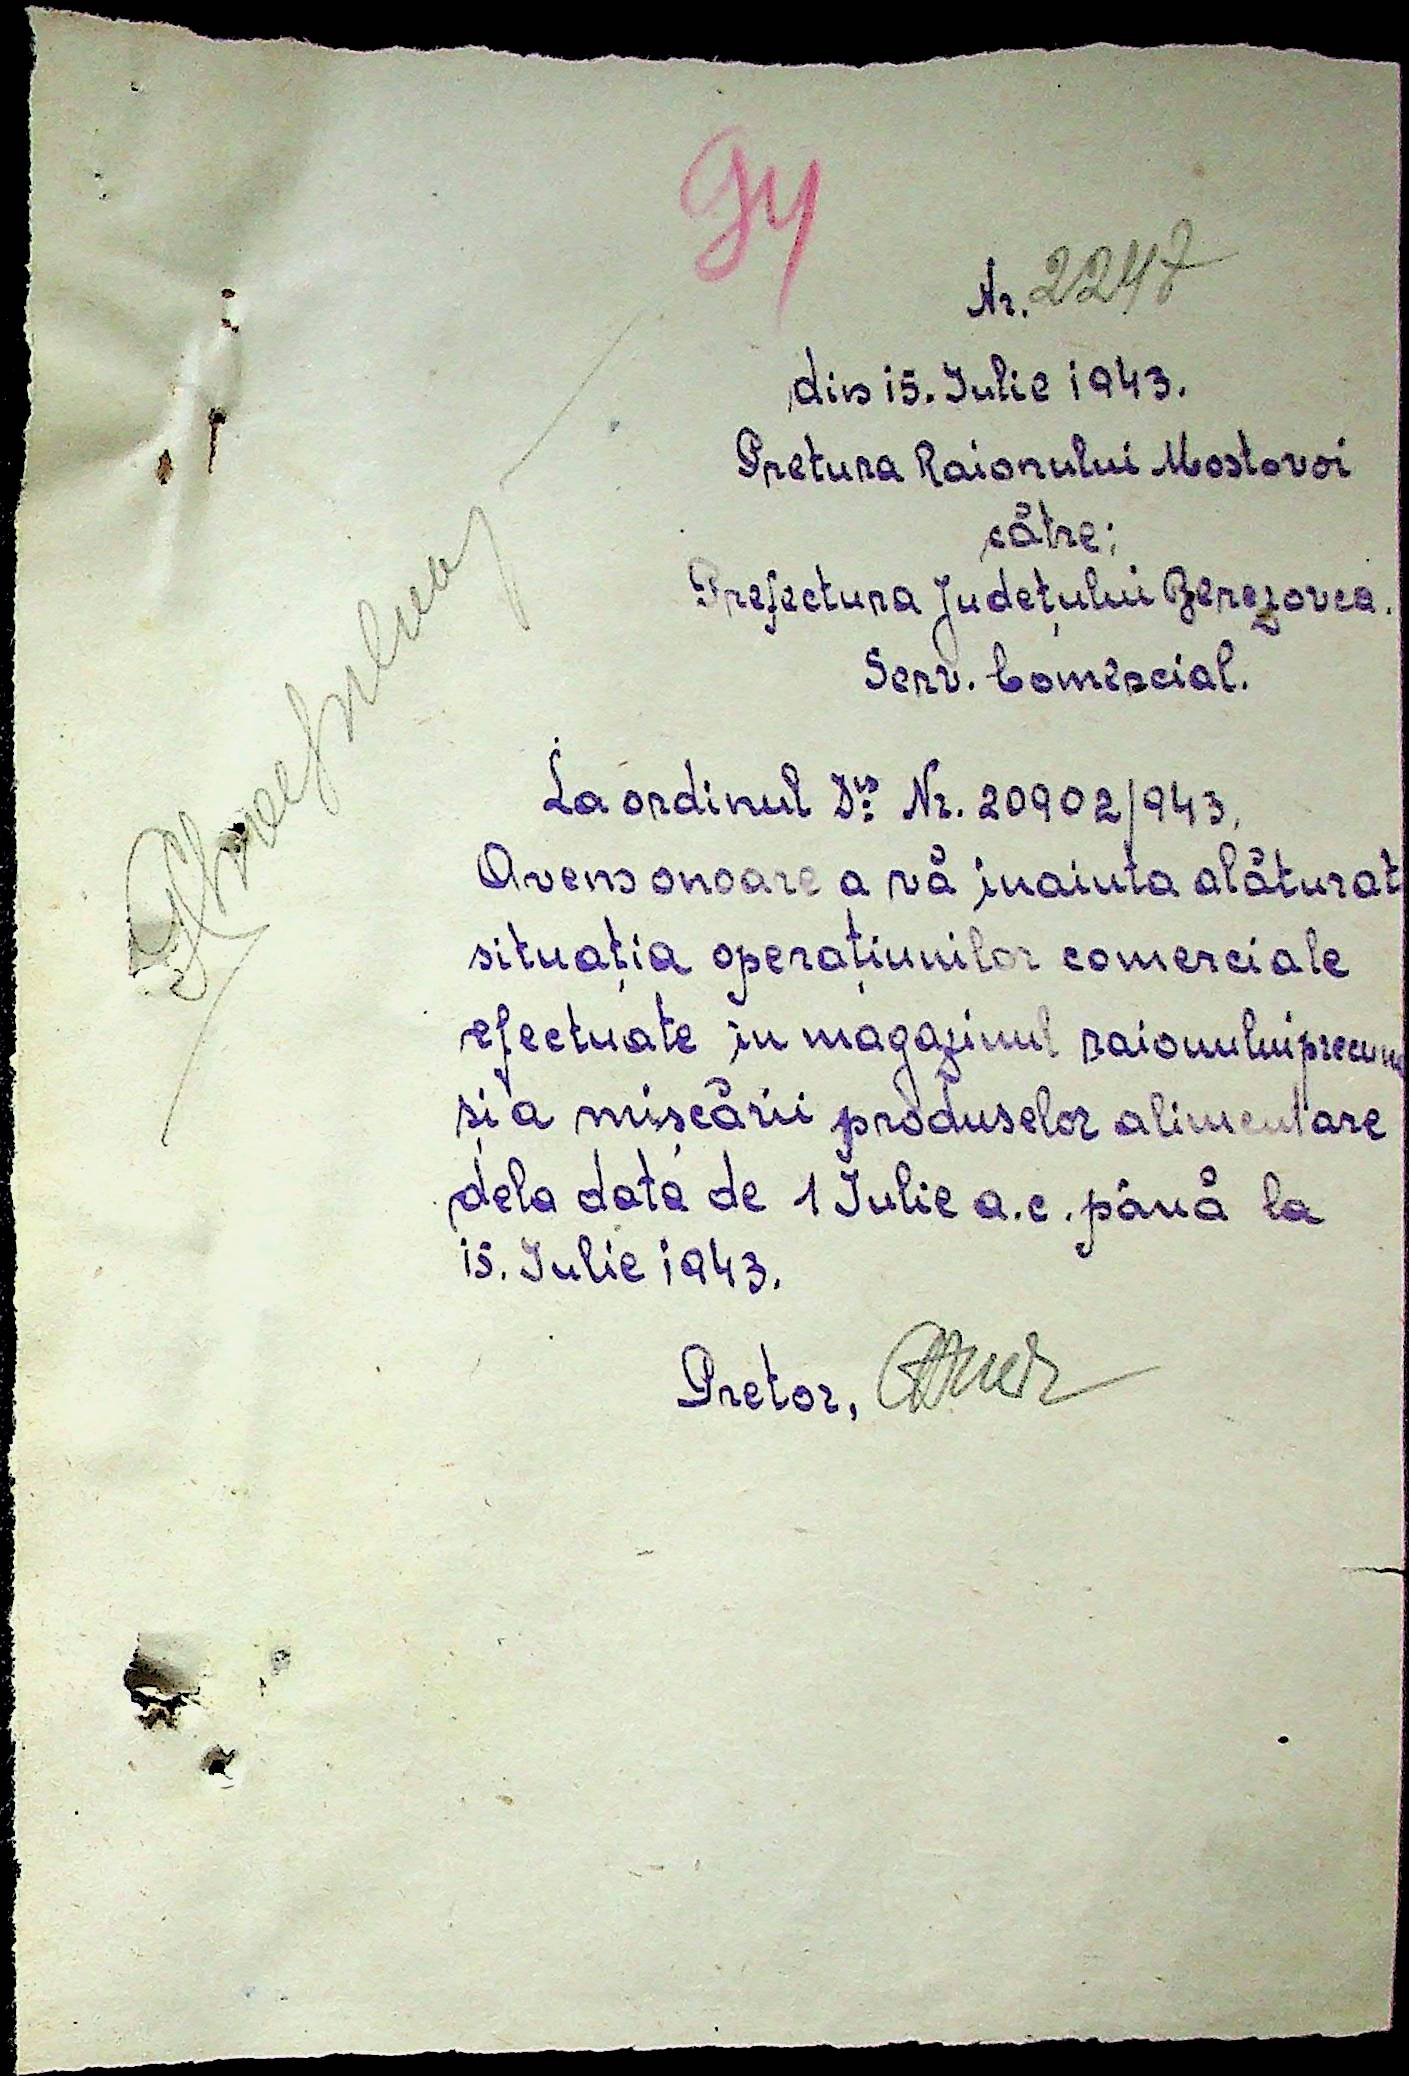 94
Nr. 2247
din 15. Iulie 1943.
Pretura Raionului Mostovoi
către:
Prefectura Județului Berezovca.
Serv. Comercial.
La ordinul Dvs Nr. 20902/943,
Avem onoare a vă inainta alăturat
situația operațiunilor comerciale
efectuate in magazinul raionului precum
și a mișcării produselor alimentare
dela data de 1 Iulie a.c. până la
15. Iulie 1943.
Pretor,